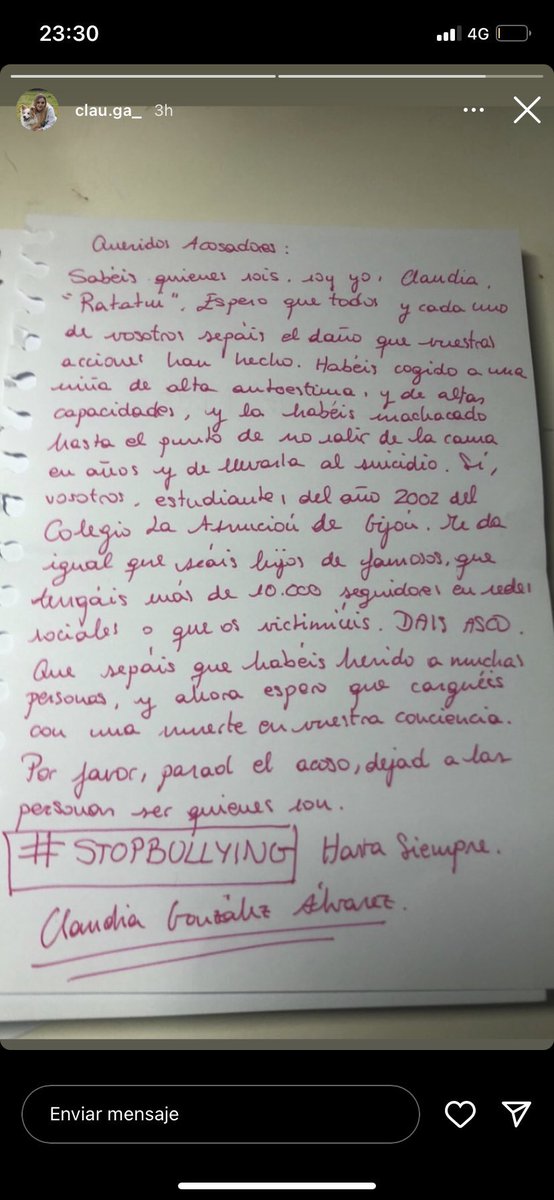 23:30
4G
clau.ga_ 3h
Queridos Acosadores:
Sabéis quienes sois, soy yo, Claudia,
"Ratatui". Espero que todos y cada uno
de vosotros sepáis el daño que vuestras
acciones han hecho. Habéis cogido a una
niña de alta autoestima, y de altas
capacidades, y la habéis machacado
hasta el punto de no salir de la cama
en años y de llevarla al suicidio. Sí,
vosotros, estudiantes del año 2002 del
Colegio La Asunción de Gijón. Me da
igual que seáis hijos de famosos, que
tengáis más de 10.000 seguidores en redes
sociales o que os victimicéis. DAIS ASCO.
Que sepáis que habéis herido a muchas
personas, y ahora espero que carguéis
con una muerte en vuestra conciencia.
Por favor, parad el acoso, dejad a las
personas ser quienes son.
#STOPBULLYING Hasta Siempre.
Claudia González Álvarez.
Enviar mensaje